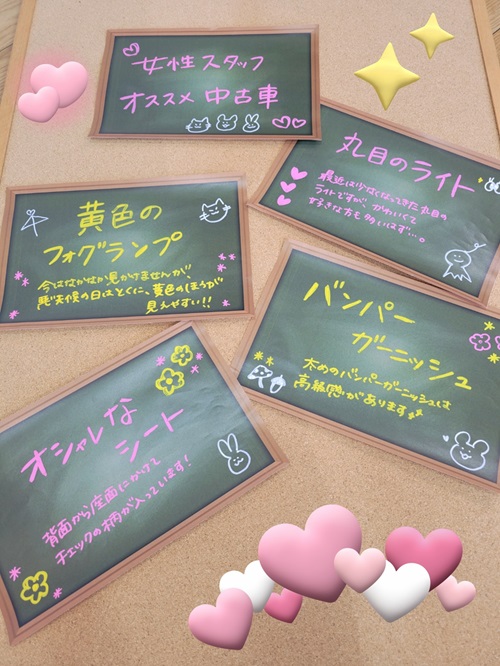 女性スタッフ
オススメ 中古車
丸目のライト
最近は少なくなってきた丸目の
ライトですが、かわいくて
好きな方も多いはず…。
黄色の
フォグランプ
今はなかなか見かけませんが、
悪天候の日はとくに、黄色のほうが
見えやすい!!
バンパー
ガーニッシュ
太めのバンパーガーニッシュは
高級感があります
オシャレな
シート
背面から座面にかけて
チェックの柄が入っています!